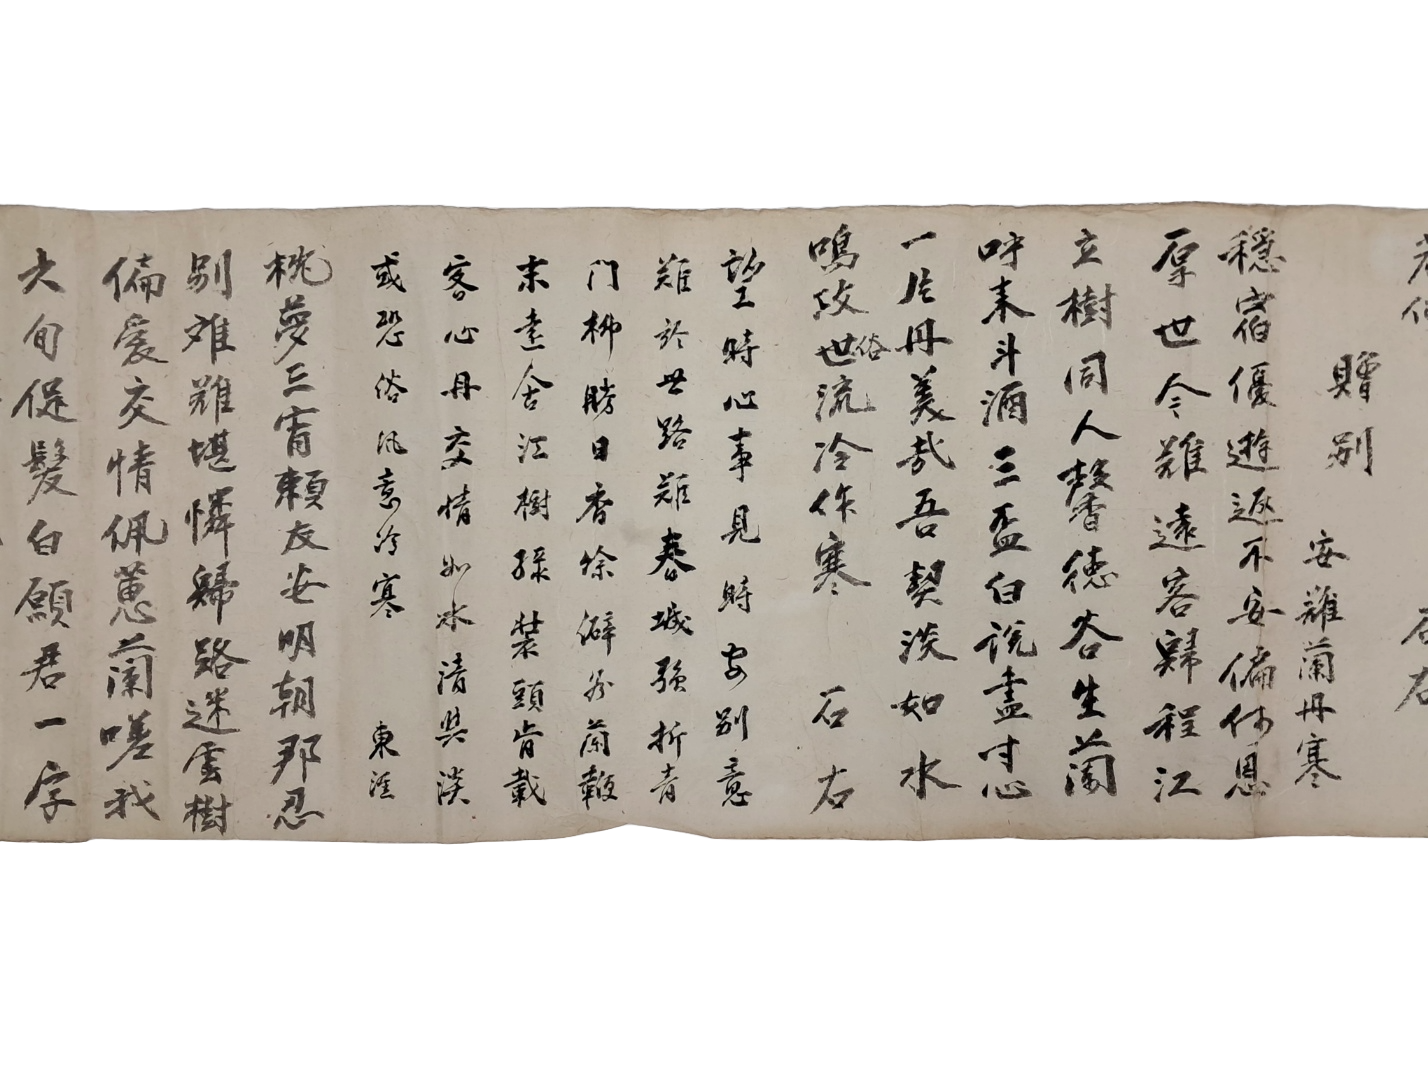 贈別
安難蘭丹寒
穩宿優遊返不安偏何恩
厚世今難遠客歸程江
立樹同人馨德谷生蘭
呼來斗酒三盃白說盡寸心
一片丹美哉吾契淡如水
鳴改世流冷作寒 石右
俗
望時心事見時安別意
難於世路難春城强折青
門柳勝日香徐僻谷蘭鞭
末遠含江樹綠裝頭肯載
客心丹交情如水清與淡
或恐俗汎意冷寒 東涯
枕夢三宵賴友安明朝那忍
別难難堪憐歸路迷雲樹
偏愛交情佩蕙蘭嗟我
六旬促髮白願君一字